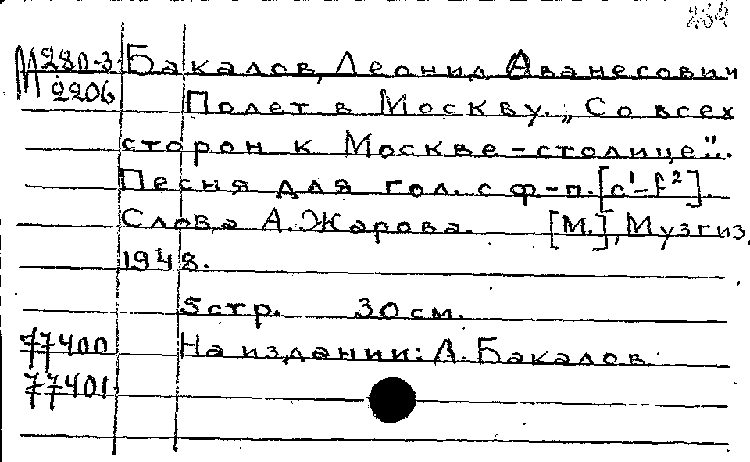 254
М 280-3 Бакалов, Леонид Аванесович
2206 Полет в Москву. „Со всех
сторон к Москве-столице".
Песня для гол. с ф-п. [c¹-f²].
Слова А. Жарова. [М.], Музгиз,
1948.
5 стр. 30 см.
77400 На издании: Л. Бакалов.
77401